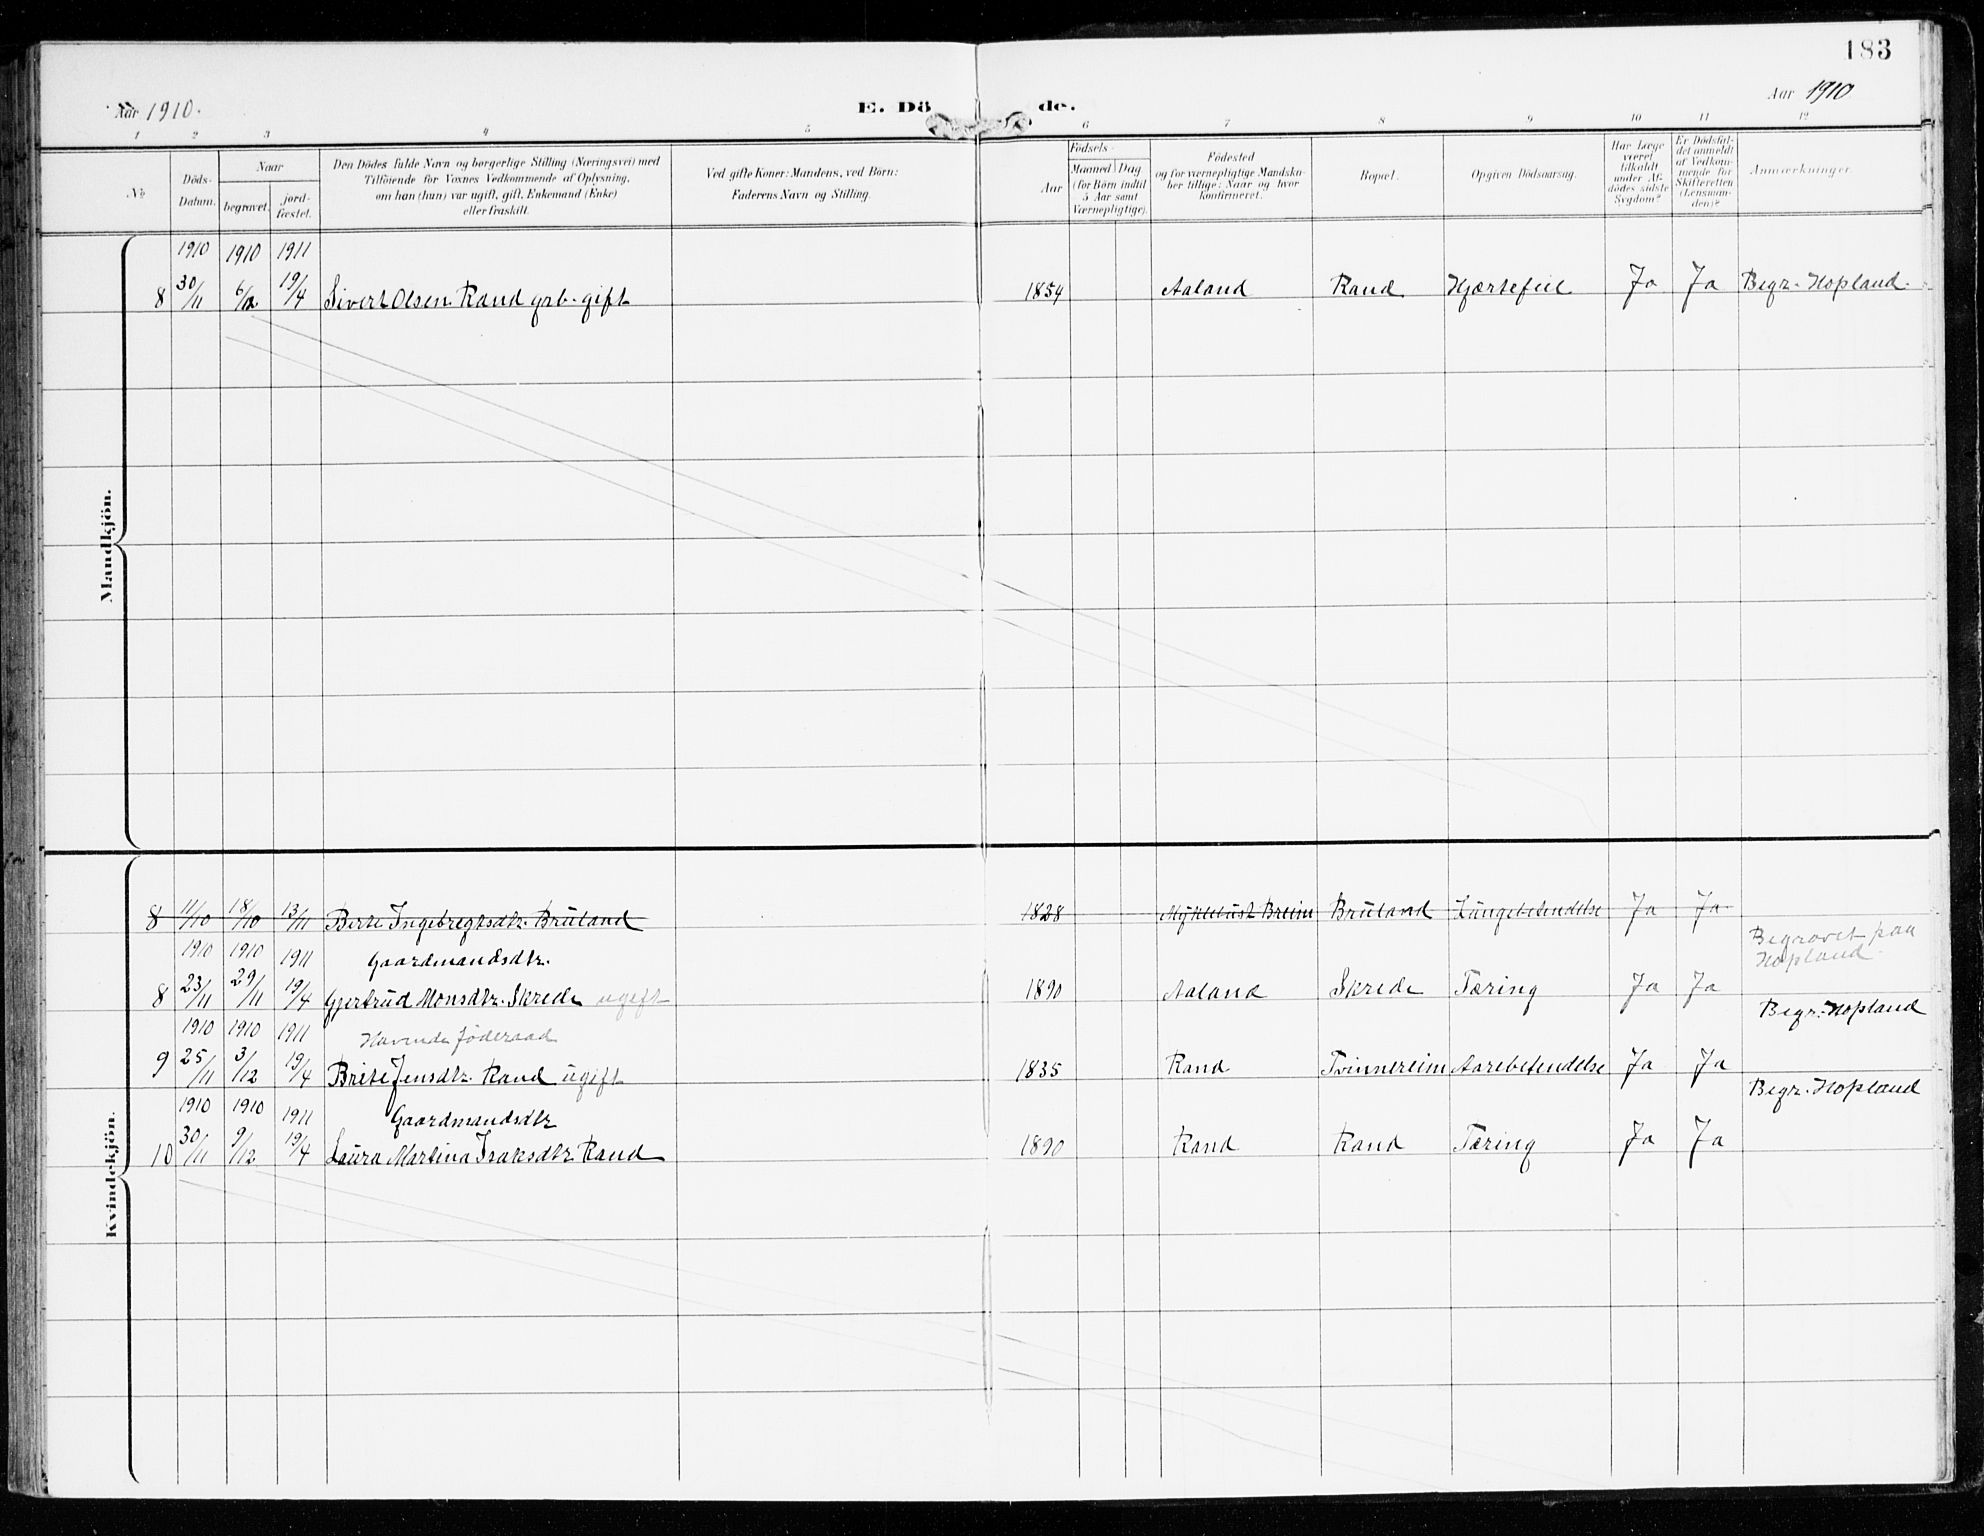 183
Aar 1910.
E. Dö de.
Aar 1910
1 2 3 4 5 6 7 8 9 10 11 12
No
Döds-
Datum.
Naar
begravet.
jord-
fæstet.
Den Dödes fulde Navn og borgerlige Stilling (Næringsvei) med
Tilföiende for Voxnes Vedkommende af Oplysning,
om han (hun) var ugift, gift, Enkemand (Enke)
eller fraskilt.
Ved gifte Koner: Mandens, ved Börn:
Faderens Navn og Stilling.
Födsels-
Aar
Maaned Dag
(for Börn indtil
5 Aar samt
Værnepligtige).
Födested
og for værnepligtige Mandska-
ber tillige: Naar og hvor
konfirmeret.
Bopæl.
Opgiven Dödsaarsag.
Har Læge
været
tilkaldt
under Af-
dödes sidste
Sygdom?
Er Dödsfal-
det anmeldt
af Vedkom-
mende for
Skifteretten
(Lensman-
den)?
Anmærkninger.
Mandkjön.
1910 1910 1911
8 30/11 6/12 19/4 Sivert Olsen Rand grb. gift 1854 Aaland Rand Hjertefeil Ja Ja Begr. Hopland.
Kvindekjön.
8 11/10 18/10 13/11 Berte Ingebregtsdtr. Bruland 1828 Myklebust Breim Bruland Lungebetendelse Ja Ja
1910 1910 1911 Gaardmandsdtr. Begravet paa
Hopland.
8 23/11 29/11 19/4 Gjertrud Monsdtr. Skrede ugift 1890 Aaland Skrede Tæring Ja Ja
1910 1910 1911 Havende føderaad Begr. Hopland
9 25/11 3/12 19/4 Brite Jensdtr. Rand ugift 1835 Rand Tvinnereim Aarebetendelse Ja Ja
1910 1910 1911 Gaardmandsdtr Begr. Hopland
10 30/11 9/12 19/4 Laura Martina Isaksdtr. Rand 1890 Rand Rand Tæring Ja Ja